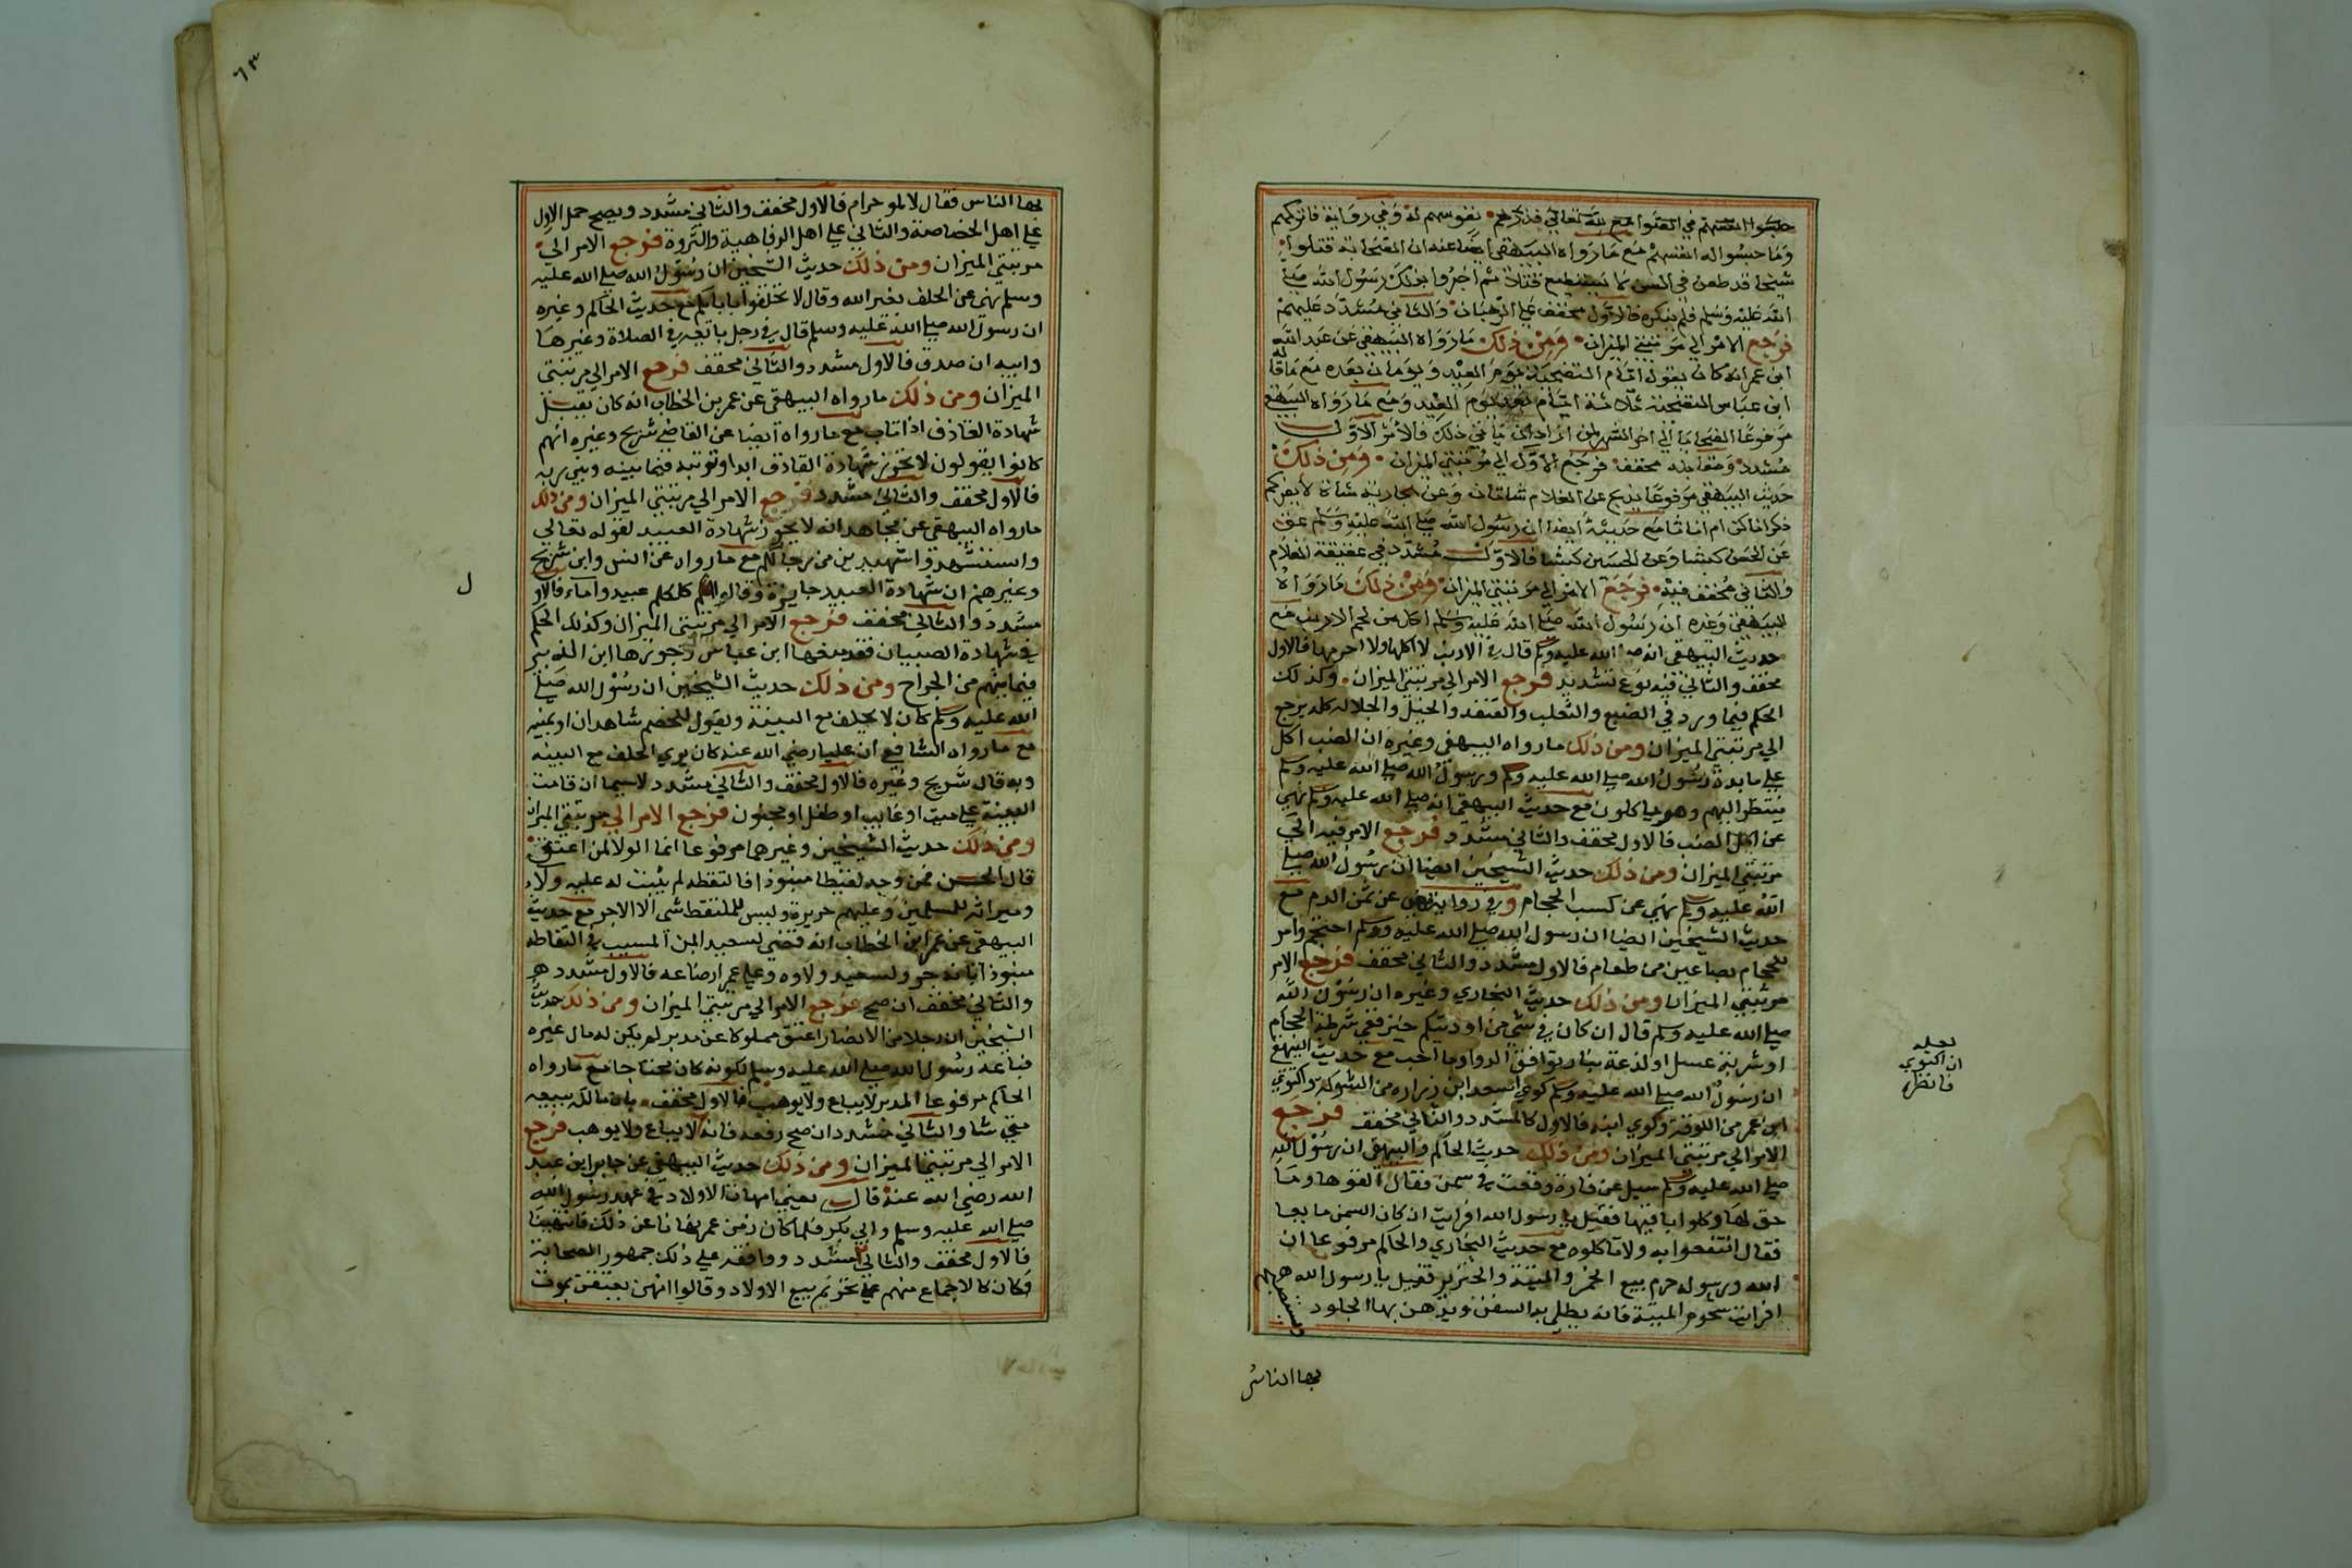 حبسوا انفسهم في الصوامع لله تعالى فذرهم نفوسهم له وفي رواية فاتركهم
وما حبسوا له انفسهم مع ما رواه البيهقي ايضا عنه ان الصحابة قتلوا
شيخا قد طعن في السن لا يستطيع قتالا ثم اخبروا بذلك رسول الله صلى
الله عليه وسلم فلم ينكره فالاول مخفف على الرهبان والثاني مشدد عليهم
فرجع الامر الي مرتبتي الميزان ومن ذلك ما رواه البيهقي عن عبد الله
ابن عمر انه كان يقول ايام التضحية يوم العيد ويومان بعده مع ما قاله
ابن عباس التضحية ثلاثة ايام بعد يوم العيد ومع ما رواه البيهقي
مرفوعا الضحايا الي اخر الشهر لمن اراد ان يتاني ذلك فالامر الاول
مشدد ومقابله مخفف فرجع الاول الي مرتبتي الميزان ومن ذلك
حديث البيهقي مرفوعا يذبح عن الغلام شاتان وعن الجارية شاة لا يضركم
ذكرانا كن ام اناثا مع حديثه ايضا ان رسول الله صلى الله عليه وسلم عق
عن الحسن كبشا وعن الحسين كبشا فالاول مشدد في عقيقة الغلام
والثاني مخفف فيه فرجع الامر الي مرتبتي الميزان ومن ذلك ما رواه
البيهقي وغيره ان رسول الله صلى الله عليه وسلم اكل من لحم الارنب مع
حديث البيهقي انه صلى الله عليه وسلم قال في الارنب لا اكلها ولا احرمها فالاول
مخفف والثاني فيه نوع تشديد فرجع الامر الي مرتبتي الميزان وكذلك
الحكم فيما ورد في الضبع والثعلب والقنفد والخيل والجلالة كله يرجع
الي مرتبتي الميزان ومن ذلك ما رواه البيهقي وغيره ان الضب اكل
على مايدة رسول الله صلى الله عليه وسلم ورسول الله صلى الله عليه وسلم
ينتظر اليهم وهم ياكلون مع حديث البيهقي انه صلى الله عليه وسلم نهي
عن اكل الضب فالاول مخفف والثاني مشدد فرجع الامر فيه الي
مرتبتي الميزان ومن ذلك حديث الشيخين ايضا ان رسول الله صلى
الله عليه وسلم نهي عن كسب الحجام وفي رواية نهي عن ثمن الدم مع
حديث الشيخين ايضا ان رسول الله صلى الله عليه وسلم احتجم وامر
للحجام بصاعين من طعام فالاول مشدد والثاني مخفف فرجع الامر
مرتبتي الميزان ومن ذلك حديث البخاري وغيره ان رسول الله
صلى الله عليه وسلم قال ان كان في شي من ادويتكم خير ففي شرطة الحجام
او شربة عسل او لذعة بنار توافق الدوا وما احب مع حديث البيهقي
ان رسول الله صلى الله عليه وسلم كوي اسعد ابن زرارة من الشوكة واكتوي
ابن عمر من اللوقة وكوي ابنه فالاول كالمشدد والثاني مخفف فرجع
الامر الي مرتبتي الميزان ومن ذلك حديث الحاكم والبيهقي ان رسول الله
صلى الله عليه وسلم سيل عن فارة وقعت في سمن فقال القوها وما
حولها وكلوا باقيها فقيل يا رسول الله افرايت ان كان السمن مايعا
فقال انتفعوا به ولا تاكلوه مع حديث البخاري والحاكم مرفوعا ان
الله ورسوله حرم بيع الخمر والميتة والخنزير فقيل يا رسول الله
افرايت شحوم الميتة فانه يطلي به السفن ويدهن بها الجلود ويستصبح
بها الناس
لعله
ان اكتوي
فانظر
٦٣
بها الناس فقال لا هو حرام فالاول مخفف والثاني مشدد ويصح حمل الاول
على اهل الخصاصة والثاني على اهل الرفاهية والثروة فرجع الامر الي
مرتبتي الميزان ومن ذلك حديث الشيخين ان رسول الله صلى الله عليه
وسلم نهي عن الحلف بغير الله وقال لا تحلفوا بابايكم مع حديث الحاكم وغيره
ان رسول الله صلى الله عليه وسلم قال في رجل ياتجر في الصلاة وغيرها
وابيه ان صدق فالاول مشدد والثاني مخفف فرجع الامر الي مرتبتي
الميزان ومن ذلك ما رواه البيهقي عن عمر بن الخطاب انه كان يقبل
شهادة القاذف اذا تاب مع ما رواه ايضا عن القاضي شريح وغيره انهم
كانوا يقولون لا تجوز شهادة القاذف ابدا وتوبته فيما بينه وبين ربه
فالاول مخفف والثاني مشدد فرجع الامر الي مرتبتي الميزان ومن ذلك
ما رواه البيهقي عن مجاهد انه لا يجوز شهادة العبيد لقوله تعالى
واستشهدوا شهيدين من رجالكم مع ما رواه عن انس وابن شريح
وغيرهم ان شهادة العبيد جايزة وقالوا كلكم عبيد واماء فالاول
مشدد والثاني مخفف فرجع الامر الي مرتبتي الميزان وكذلك الحكم
في شهادة الصبيان فقد منعها ابن عباس وجوزها ابن الزبير
فيما بينهم من الجراح ومن ذلك حديث الشيخين ان رسول الله صلى
الله عليه وسلم كان لا يحلف مع البينة ويقول للخصم شاهدان او يمينه
مع ما رواه الشافعي ان عليا رضي الله عنه كان يري الحلف مع البينه
وبه قال شريح وغيره فالاول مخفف والثاني مشدد لاسيما ان قامت
البينة على ميت او غايب او طفل او مجنون فرجع الامر الي مرتبتي الميزان
ومن ذلك حديث الشيخين وغيرهما مرفوعا انما الولا لمن اعتق
قال الحسن فمن وجد لقيطا منبوذا فالتقطه لم يثبت له عليه ولاء
وميراثه للمسلمين وعليهم جريرة وليس للملتقط شي الا الاجر مع حديث
البيهقي عن عمر ابن الخطاب انه قضي لسعيد ابن المسيب في التقاطه
منبوذا بانه حر ولسعيد ولاوه وعلى عمر ارضاعه فالاول مشدد
والثاني مخفف ان صح فرجع الامر الي مرتبتي الميزان ومن ذلك حديث
الشيخين ان رجلا من الانصار اعتق مملوكا عن دبر لم يكن له مال غيره
فباعه رسول الله صلى الله عليه وسلم لكونه كان محتاجا مع ما رواه
الحاكم مرفوعا المدبر لا يباع ولا يوهب فالاول مخفف بان مالكه يبيعه
متي شا والثاني مشدد ان صح رفعه فانه لا يباع ولا يوهب فرجع
الامر الي مرتبتي الميزان ومن ذلك حديث البيهقي عن جابر ابن عبد
الله رضي الله عنه قال بعنا امهات الاولاد في عهد رسول الله
صلى الله عليه وسلم وابي بكر فلما كان زمن عمر نهانا عن ذلك فانتهينا
فالاول مخفف والثاني مشدد ووافقه على ذلك جمهور الصحابة
فكان كالاجماع منهم على تحريم بيع الاولاد وقالوا انهن يعتقن بموت
ل